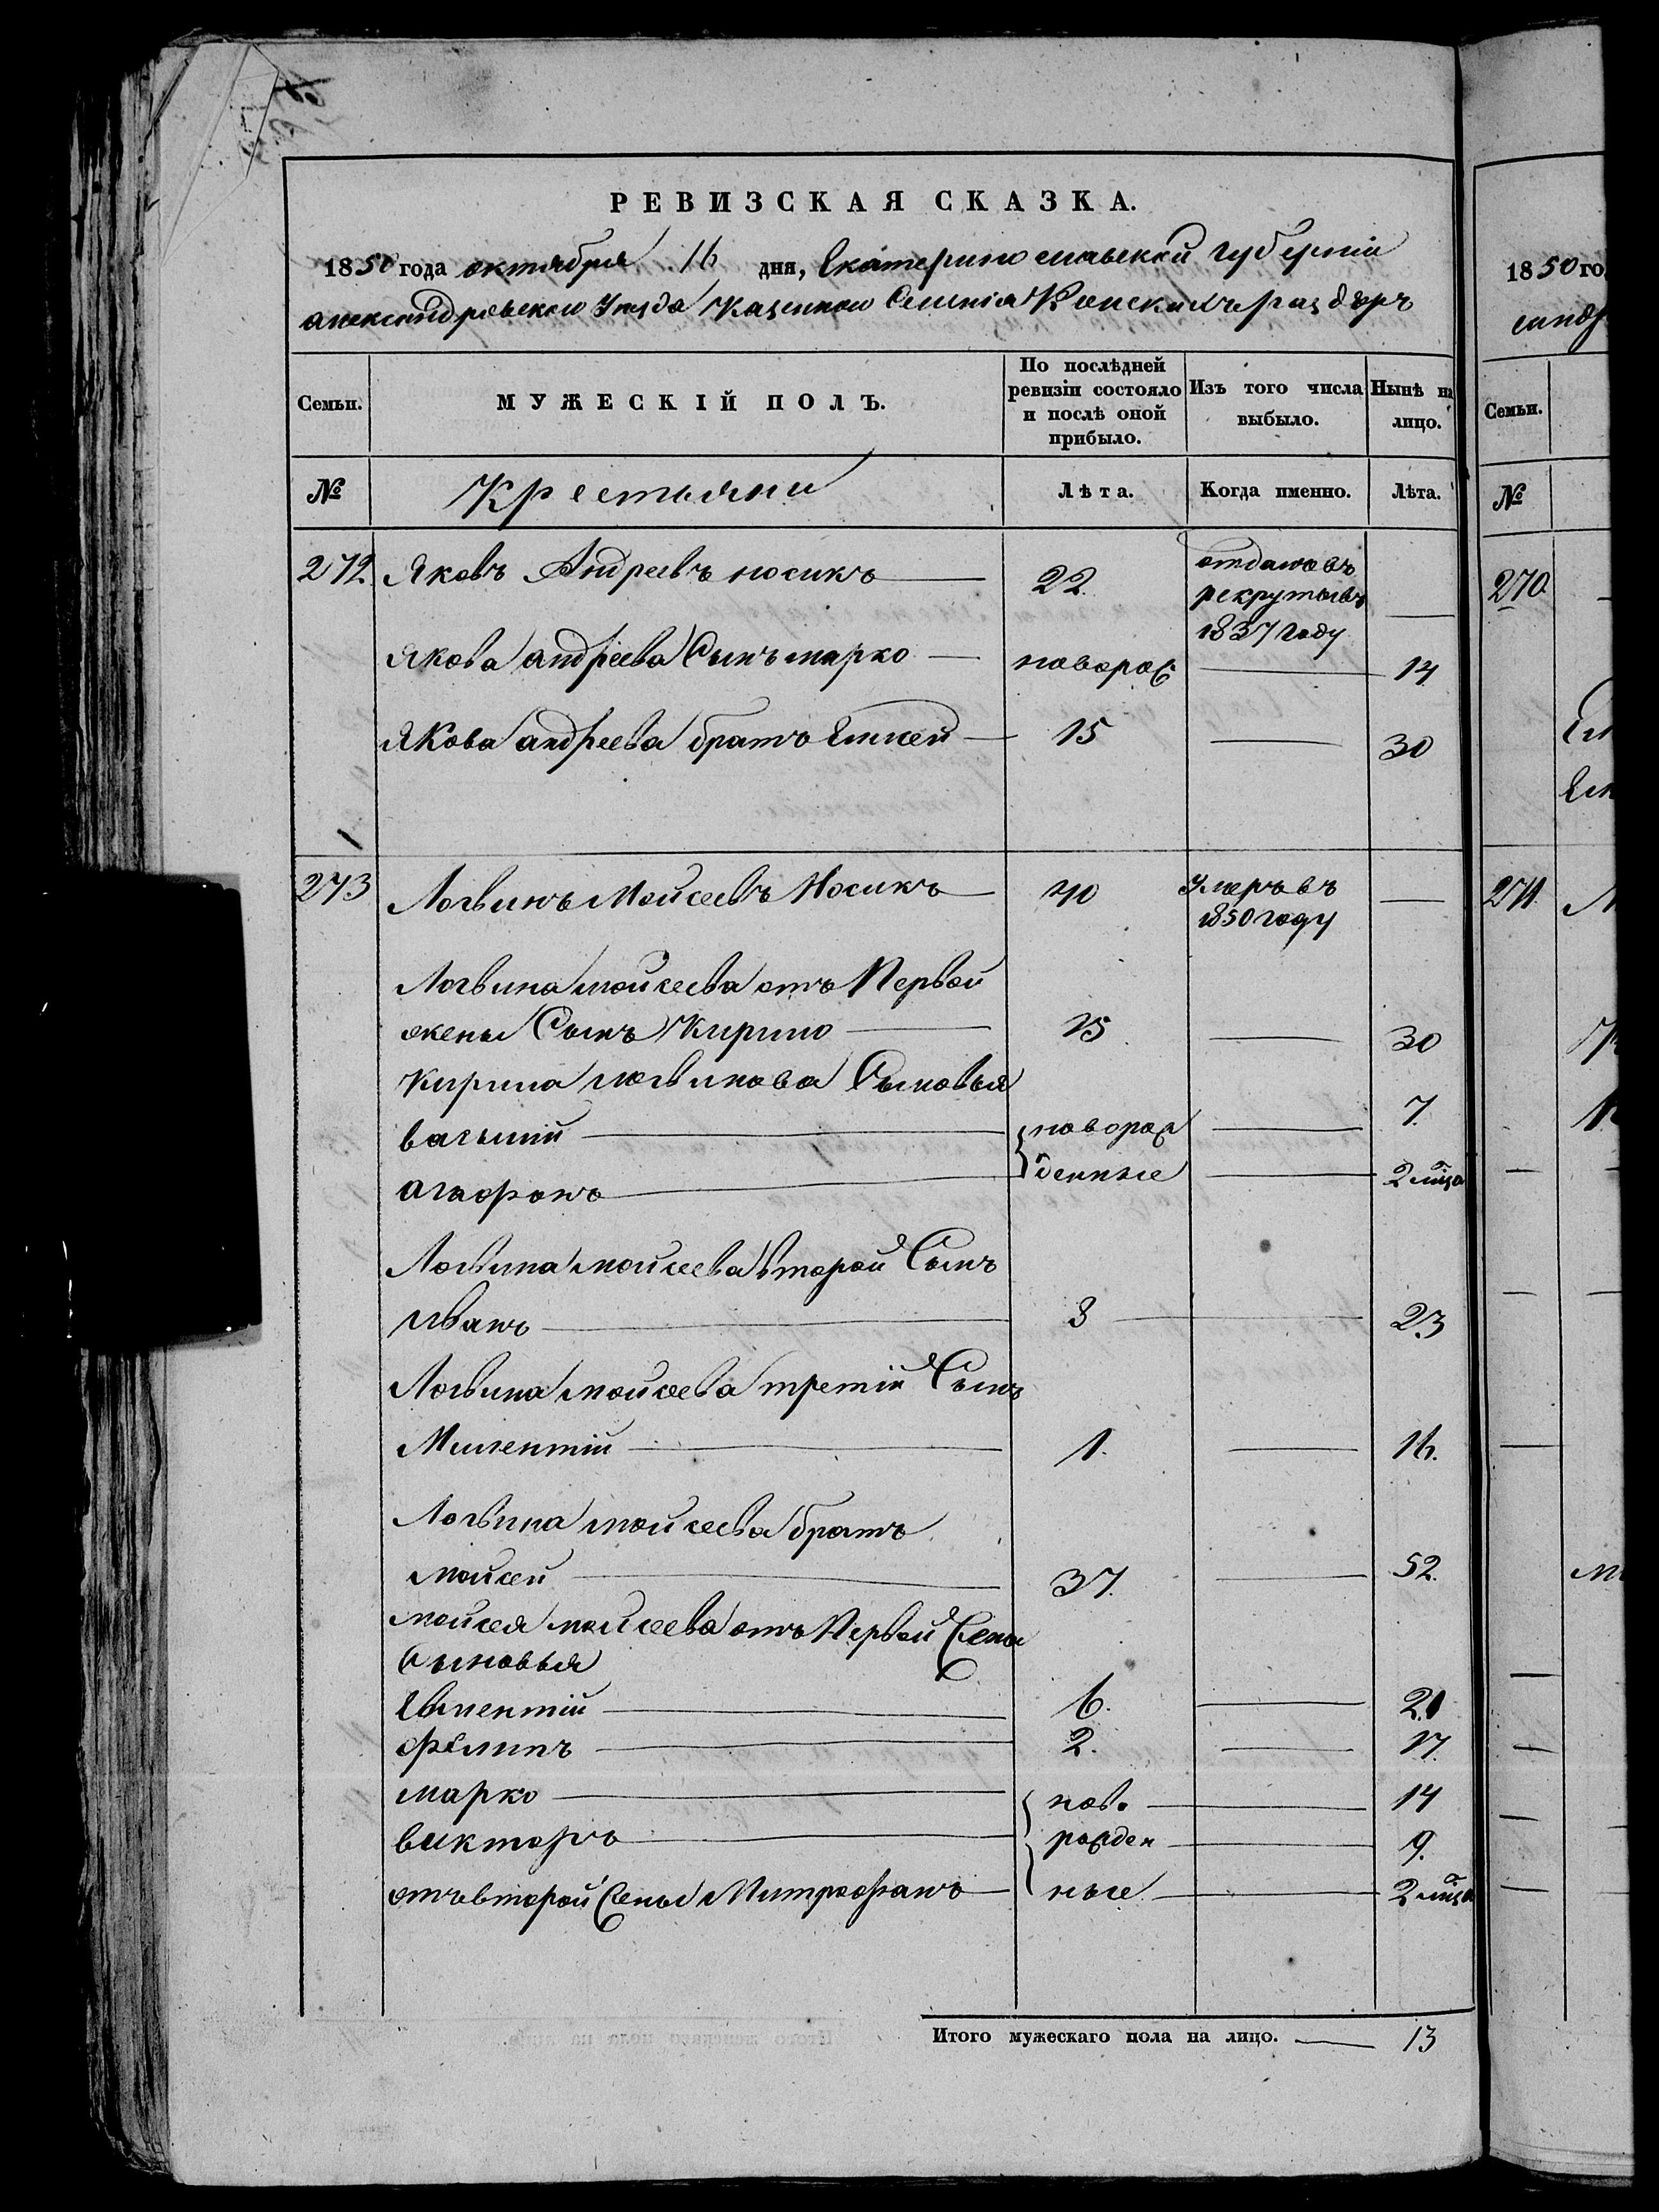 РЕВИЗСКАЯ СКАЗКА.
1850 года октября 16 дня, Екатеринославской губерніи
александровского Уезда Казенного Селенія Конскихъ раздоръ
Семьи.
МУЖЕСКІЙ ПОЛЪ.
По послѣдней ревизіи состояло и послѣ оной прибыло.
Изъ того числа выбыло.
Нынѣ на лицо.
№
Крестьяни
Лѣта.
Когда именно.
Лѣта.
272 Яковъ Андреевъ носикъ 22. отданъ въ
рекруты въ
1837 году
Якова андреева Сынъ марко новорож 14
Якова андреева братъ Елисей 15 30
273 Логвинъ Мойсеевъ Носикъ 40 Умеръ въ
1850 году
Логвина мойсеева отъ Первой
жены Сынъ Кирило 15 30
Кирила логвинова Сыновья
василий новорож 7.
агафонъ денные 2 мца
Логвина мойсеева второй Сынъ
Иванъ 8 23
Логвина мойсеева третій Сынъ
Милентий 1. 16.
Логвина мойсеева братъ
мойсей 37. 52.
мойсея мойсеева отъ Первой жены
Сыновья
Евментій 6. 21
филипъ 2. 17.
марко ново 14
викторъ рожден 9.
отъ второй жены Митрофанъ ные 2 мца
Итого мужескаго пола на лицо. 13
1850 го
Семьи.
№
270
271